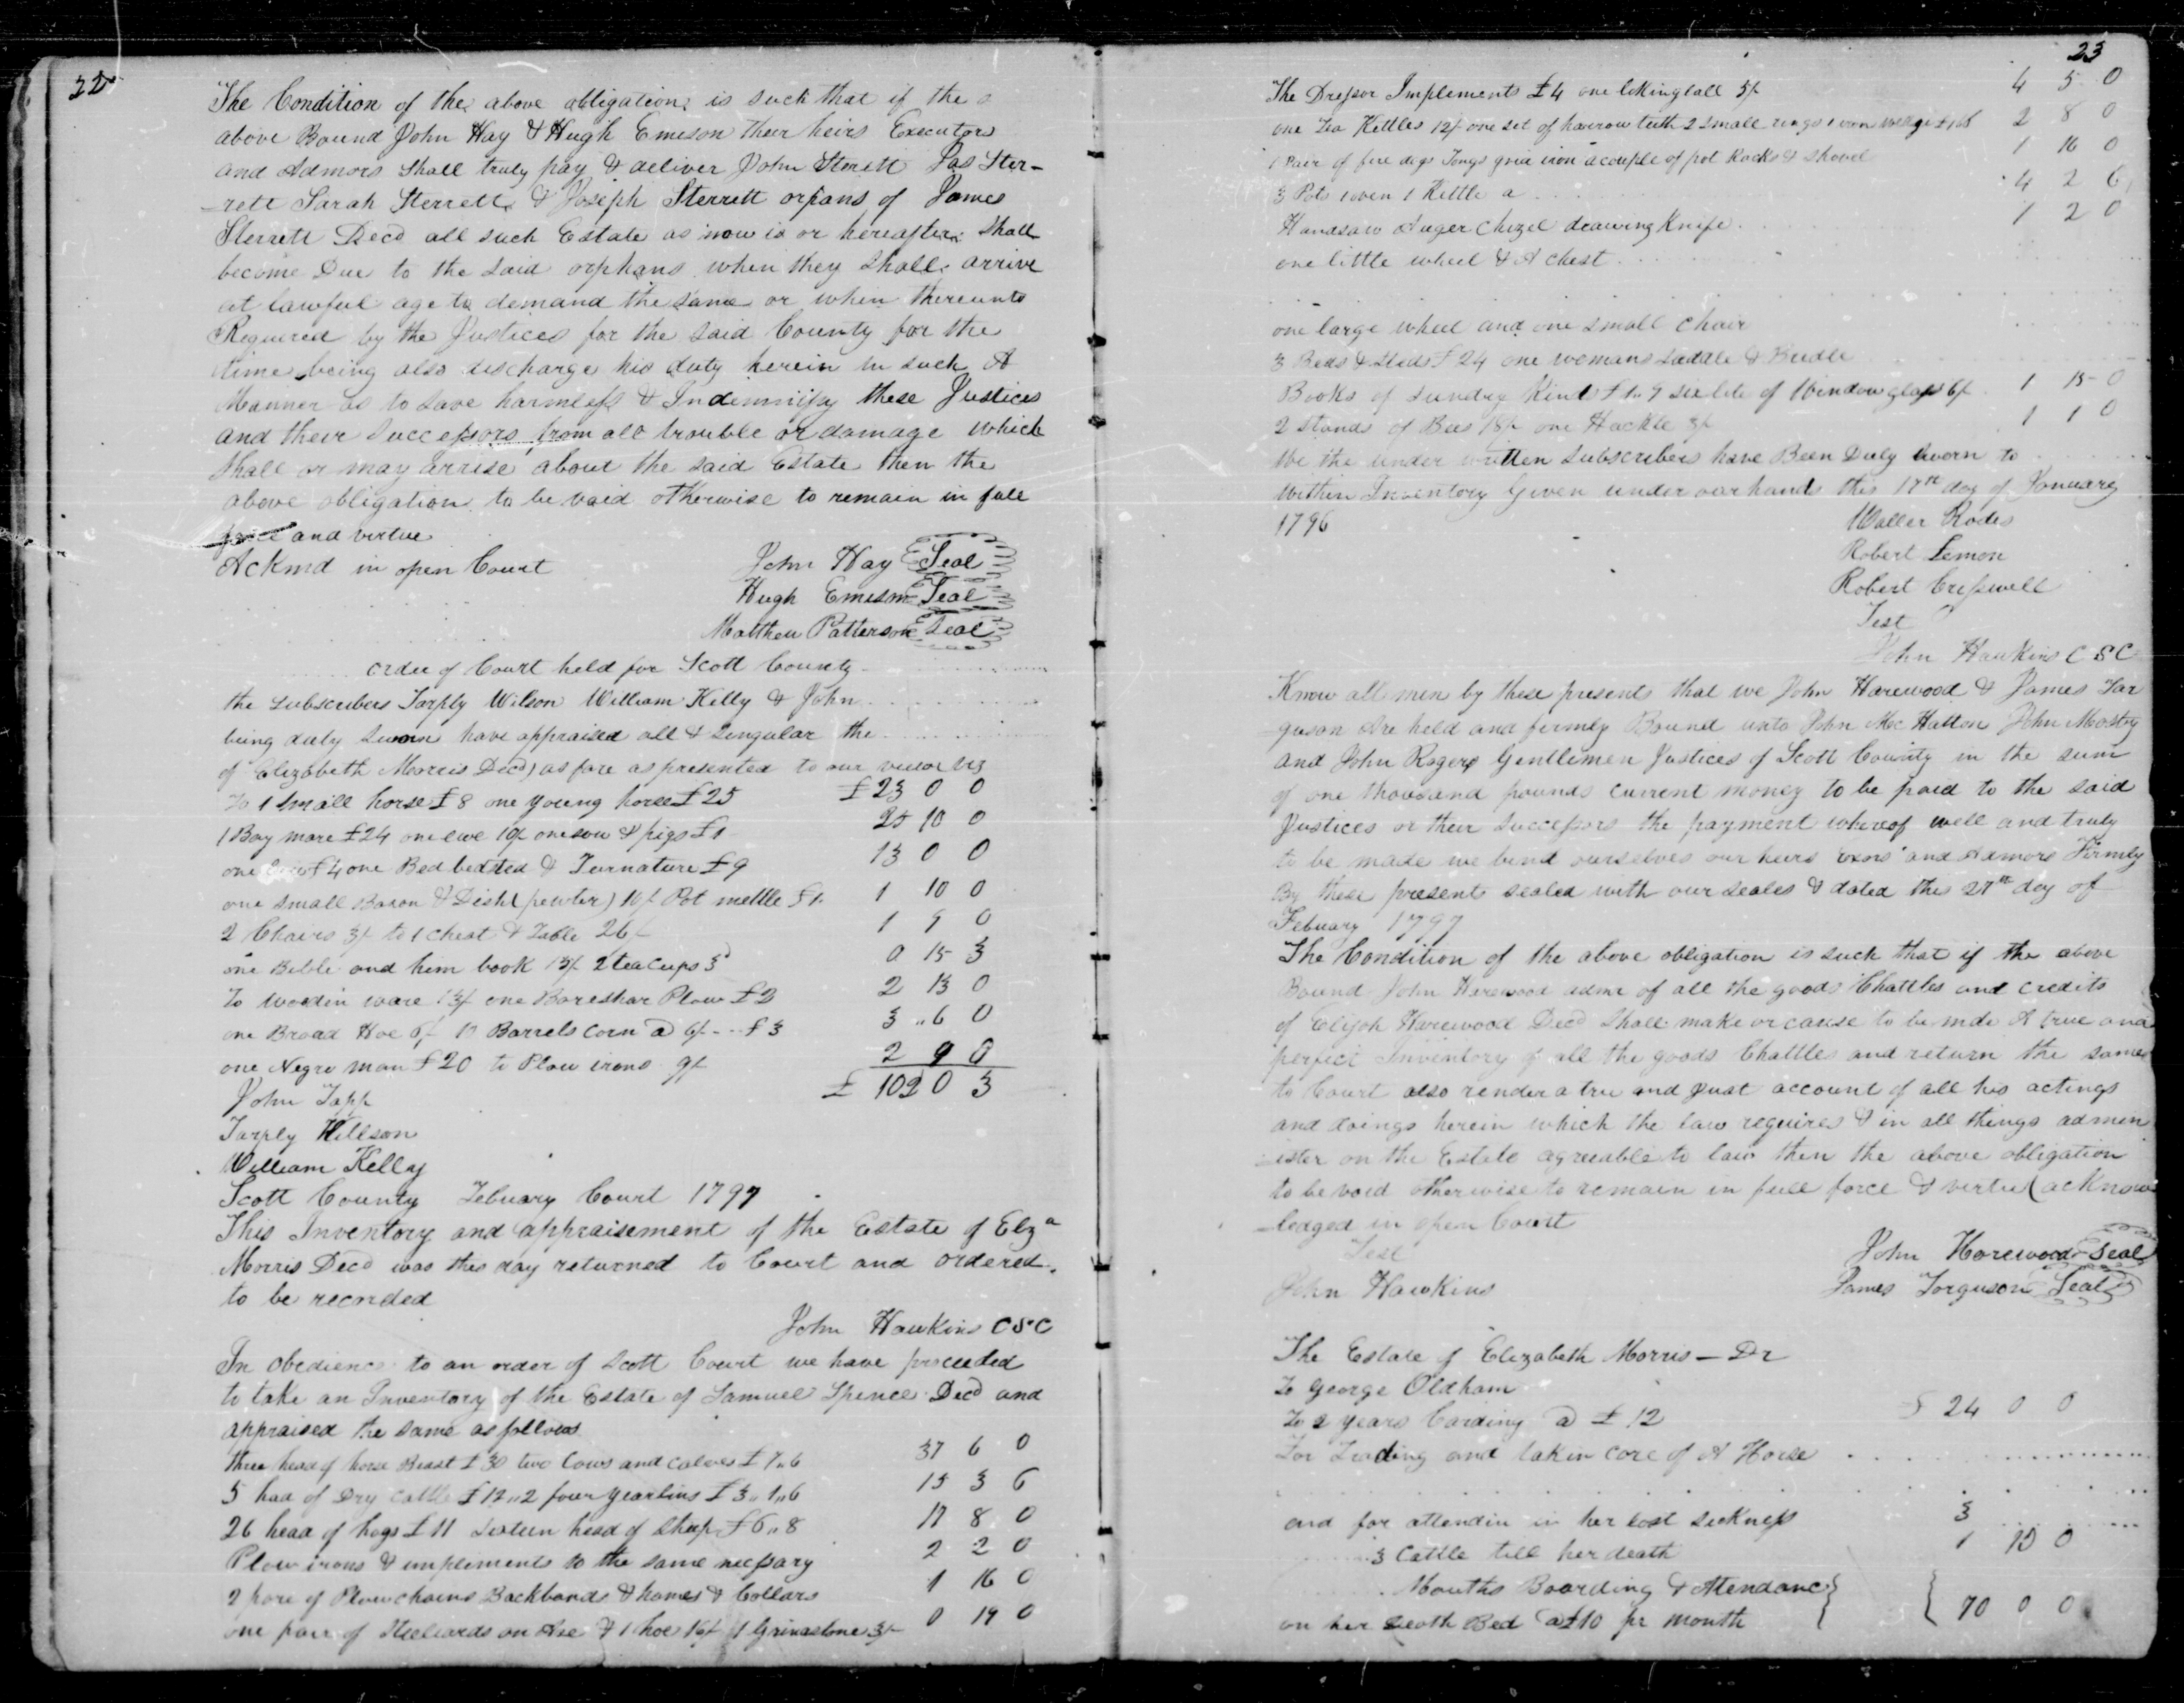 22
The Condition of the above obligation is such that if the
above Bound John Hay & Hugh Emison their heirs Executors
and Admors Shall truly pay & deliver John Sterett Jas Ster-
-rett Sarah Sterrett & Joseph Sterrett orpans of James
Sterrett Decd all such Estate as now is or hereafter Shall
become Due to the said orphans when they Shall arrive
at lawful age to demand the same or when thereunto
Required by the Justices for the said County for the
time being also discharge his duty herein in such A
Manner as to save harmless & Indemnify these Justices
and their Successors from all trouble or damage which
shall or may arrise about the said Estate then the
above obligation to be void otherwise to remain in full
force and virtue
Ackmd in open Court John Hay Seal
Hugh Emison Seal
Matthew Patterson Seal
order of Court held for Scott County
the subscribers Tarply Wilson William Kelly & John
being duly sworn have appraised all & singular the
of Elizabeth Morris Decd as fare as presented to our view viz
To 1 Small horse £8 one young horse £25 £23 0 0
1 Bay mare £24 one ewe 10/ one sow & pigs £1 25 10 0
one £4 one Bed bedsted & Furnature £9 13 0 0
one small Bason & Dish (pewter) 10/ Pot mettle £1 1 10 0
2 Chairs 3/ to 1 Chest & Table 26/ 1 9 0
one Bible and him book 15/ 2 tea Cups 3d 0 15 3
To wooden ware 13/ one Bareshar Plow £2 2 13 0
one Broad Hoe 6/ 10 Barrels Corn @ 6/ - - £3 3 „6 0
one Negro man £20 to Plow irons 9/ 2 9 0
John Tapp £ 102 0 3
Tarply Willson
William Kelly
Scott County Febuary Court 1797
This Inventory and appraisement of the Estate of Elza
Morris Decd was this day returned to Court and ordered
to be recorded
John Hawkins CSC
In obedience to an order of Scott Court we have proceeded
to take an Inventory of the Estate of Samuel Spence Decd and
appraised the same as follows
three head of horse Beast £30 two Cows and calves £7„6 37 6 0
5 had of Dry cattle £12„2 four yearlins £3„1„6 15 3 6
26 head of hogs £11 sixteen head of Sheep £6„8 17 8 0
Plow irons & impliments to the same nessary 2 2 0
2 pare of Plow chains Backbands & hames & Collars 1 16 0
one pair of Stilliards an Axe & 1 hoe 16/ 1 Grinastone 3/- 0 19 0
23
The Dressor Implements £4 one lokinglass 5/ 4 5 0
one Tea Kettles 12/ one set of harrow teeth 2 small rings 1 iron wedge 2 8 0
1 Pair of fire dogs Tongs grid iron a couple of pot Racks & Shovel 1 16 0
3 Pots 1 oven 1 Kettle a 4 2 6
Handsaw Auger Chizel drawing Knife 1 2 0
one little wheel & A chest
one large wheel and one small chair
3 Beds & Steds £24 one womans saddle & Bridle
Books of sundry Kind £1„9 six lite of Window glass 6/ 1 15 0
2 Stands of Bees 18/ one Hackle 3/ 1 1 0
We the under written subscribers have Been Duly sworn to
within Inventory Given under our hands this 17th day of January
1796 Waller Rodes
Robert Lemon
Robert Cresswell
Test
John Hawkins C S C
Know all men by these presents that we John Harewood & James Far
guson Are held and firmly Bound unto John Mc Hatton John Mosby
and John Rogers Gentlemen Justices of Scott County in the sum
of one thousand pounds Current money to be paid to the said
Justices or their successors the payment whereof well and truly
to be made we bind ourselves our heirs Exors and Admors Firmly
By these present sealed with our seales & dated this 27th day of
Febuary 1797
The Condition of the above obligation is such that if the above
Bound John Harewood admr of all the goods Chattles and credits
of Elijoh Harewood Decd Shall make or cause to be mde A true and
perfect Inventory of all the goods Chattles and return the same
to Court also render a true and Just account of all his actings
and doings herein which the law requires & in all things admin
-ister on the Estate agreeable to law then the above obligation
to be void otherwise to remain in full force & virtue (acknow
-ledged in open Court
Test John Horewood Seal
John Hawkins James Forguson Seal
The Estate of Elizabeth Morris - Dr
To George Oldham
To 2 years Carding @ £12 £ 24 0 0
For Leading and takin care of A Horse
and for attendin in her last sickness 3
3 Cattle till her death 1 10 0
Months Boarding & Attendanc
on her Death Bed @ £10 pr month 70 0 0